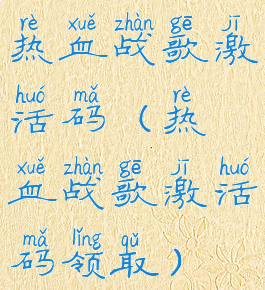 rè xuè zhàn gē jī
热血战歌激
huó mǎ rè
活码（热
xuě zhàn gē jī huó
血战歌激活
mǎ lǐng qǔ
码领取）